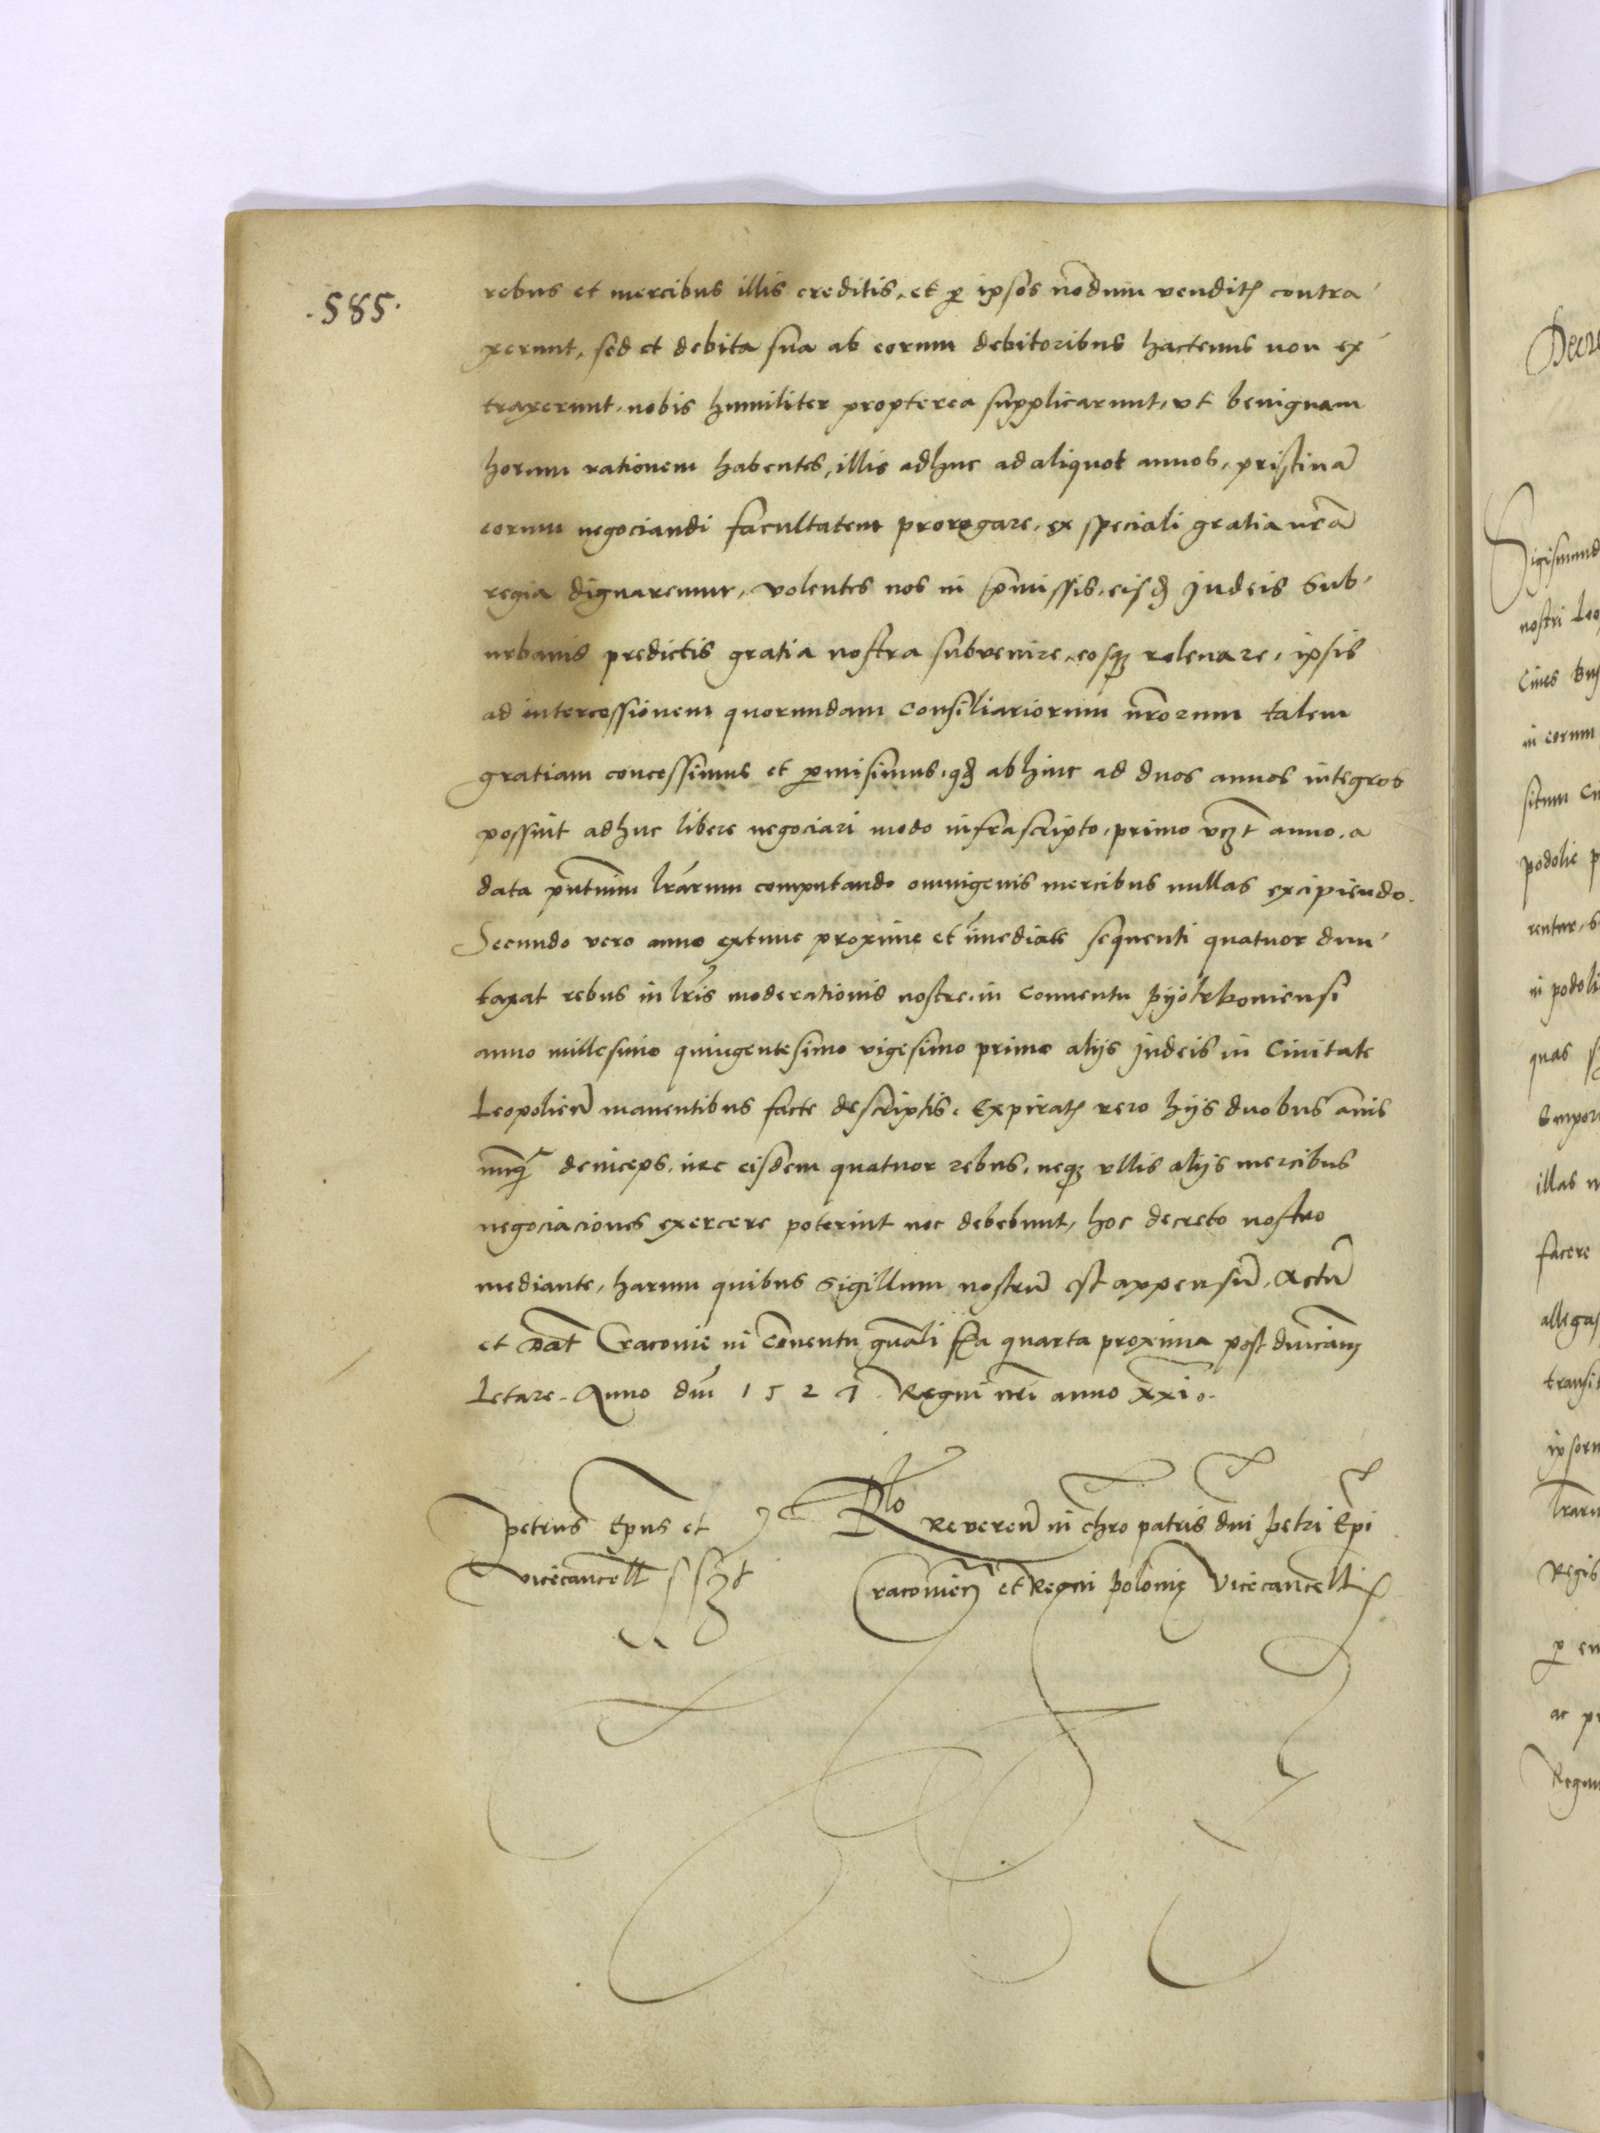 .585.
rebus et mercibus illis creditis, et p ipsos nōdum vendit contra
xerunt, sed et debita sua ab eorum debitoribus hactenus non ex
traxerunt, nobis humiliter propterea supplicarunt, vt benignam
horum rationem habentes, illis adhuc ad aliquot annos, pristinā
eorum negociandi facultatem prorogare, ex speciali gratia nrā
regia dignaremur, volentes nos in pmissis, eisd Judeis Sub
urbanis predictis gratia nostra subvenire, eosq relevare, ipsis
ad intercessionem quorundam Consiliariorum nrōrum talem
gratiam concessimus et pmisimus, qd abhinc ad duos annos integros
possint adhuc libere negociari modo infrascripto, primo vczt anno, a
data pntium lrārum computando omnigenis mercibus nullas excipiendo.
Secundo vero anno extunc proxime et imediate sequenti quatuor dun
taxat rebus in lris moderationis nostre, in Conventu pyotrkoviensi
anno millesimo quingentesimo vigesimo primo alijs Judeis in Civitate
Leopolien manentibus facte descriptis. Expirat vero hijs duobus annis
nunq deinceps, nec eisdem quatuor rebus, neq vllis alijs mercibus
negociaciones exercere poterint nec debebunt, hoc decreto nostro
mediante, harum quibus Sigillum nostrū est appensū, Actū
et Dat Cracovie in Conventu gnali fra quarta proxima post dnicam
Letare. Anno dni 1527 Regni nri anno xxio.
petrus Epus et Rlo Reveren in chro patris dni petri Epi
vicecancell sszt Cracovien et Regni polonie Vicecancellij
Sigismund
nostri Leo
Cives
in eorum
situm
podolie p
rentur,
in podoli
quas
Smpor
illas
facere
allegas
transit
ipsoru
lraru
Regis
p eu
ac p
Regni